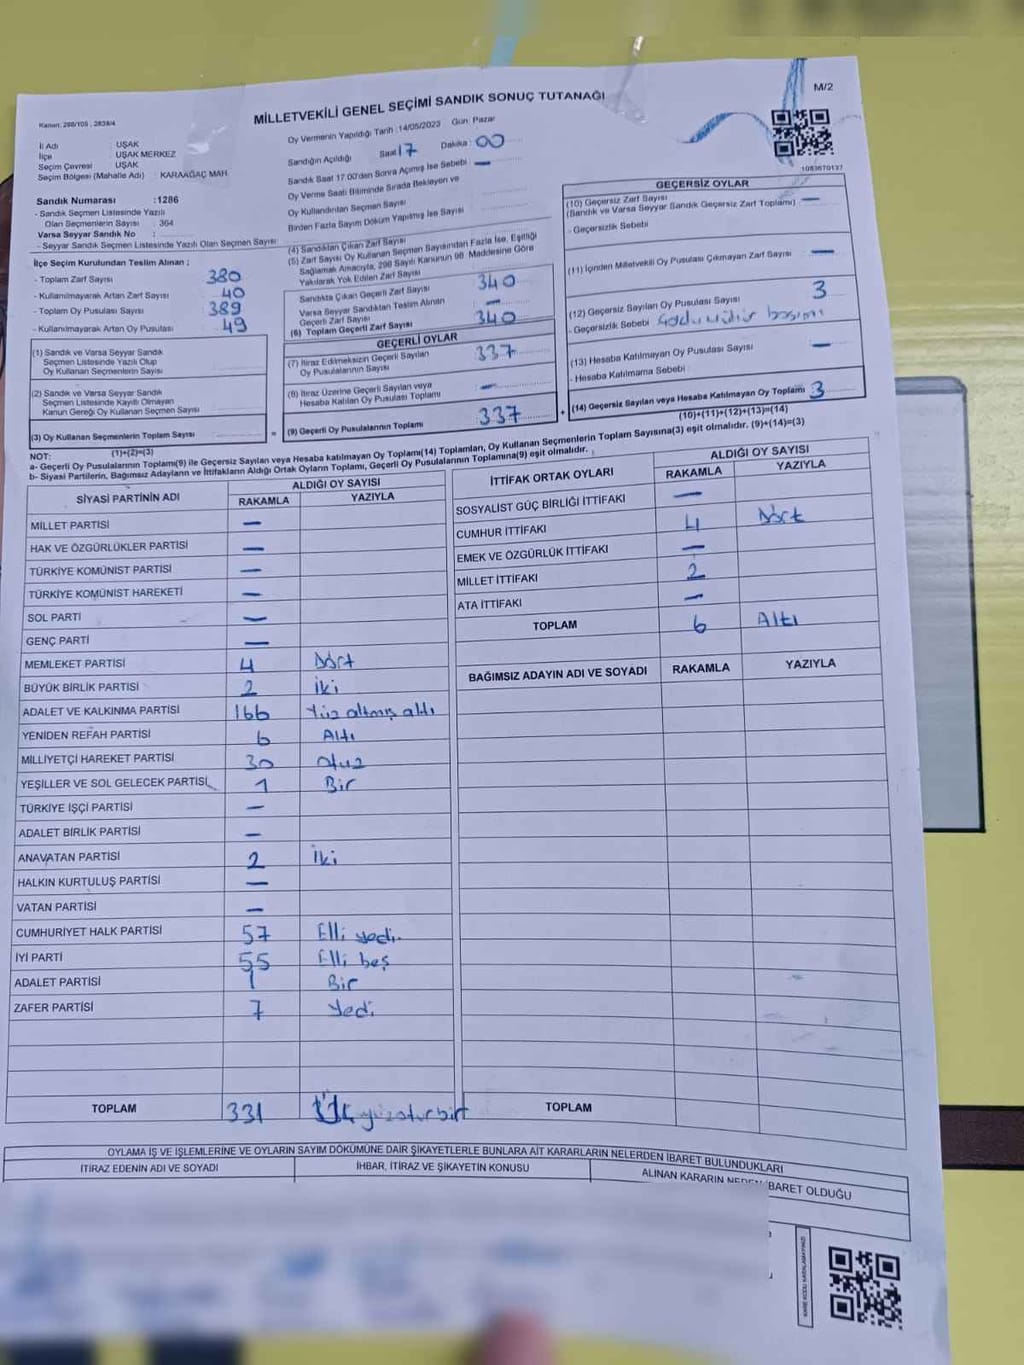 M/2
MİLLETVEKİLİ GENEL SEÇİMİ SANDIK SONUÇ TUTANAĞI
Kanun: 298/105 , 2839/4
Oy Vermenin Yapıldığı Tarih :14/05/2023 Gün: Pazar
İl Adı : UŞAK
İlçe : UŞAK MERKEZ
Seçim Çevresi : UŞAK
Seçim Bölgesi (Mahalle Adı) : KARAAĞAÇ MAH.
Sandığın Açıldığı Saat 17 Dakika : 00
Sandık Saat 17.00'den Sonra Açılmış İse Sebebi : —
Oy Verme Saati Bitiminde Sırada Bekleyen ve
Oy Kullandırılan Seçmen Sayısı
Birden Fazla Sayım Döküm Yapılmış İse Sayısı
Sandık Numarası : 1286
- Sandık Seçmen Listesinde Yazılı
Olan Seçmenlerin Sayısı : 364
Varsa Seyyar Sandık No :
- Seyyar Sandık Seçmen Listesinde Yazılı Olan Seçmen Sayısı
İlçe Seçim Kurulundan Teslim Alınan ;
- Toplam Zarf Sayısı 380
- Kullanılmayarak Artan Zarf Sayısı 40
- Toplam Oy Pusulası Sayısı 389
- Kullanılmayarak Artan Oy Pusulası 49
(1) Sandık ve Varsa Seyyar Sandık
Seçmen Listesinde Yazılı Olup
Oy Kullanan Seçmenlerin Sayısı
(2) Sandık ve Varsa Seyyar Sandık
Seçmen Listesinde Kayıtlı Olmayan
Kanun Gereği Oy Kullanan Seçmen Sayısı
(3) Oy Kullanan Seçmenlerin Toplam Sayısı
(1)+(2)=(3)
(4) Sandıktan Çıkan Zarf Sayısı
(5) Zarf Sayısı Oy Kullanan Seçmen Sayısından Fazla İse, Eşitliği
Sağlamak Amacıyla, 298 Sayılı Kanunun 98 Maddesine Göre
Yakılarak Yok Edilen Zarf Sayısı
Sandıkta Çıkan Geçerli Zarf Sayısı 340
Varsa Seyyar Sandıktan Teslim Alınan
Geçerli Zarf Sayısı —
(6) Toplam Geçerli Zarf Sayısı 340
GEÇERLİ OYLAR
(7) İtiraz Edilmeksizin Geçerli Sayılan
Oy Pusulalarının Sayısı 337
(8) İtiraz Üzerine Geçerli Sayılan veya
Hesaba Katılan Oy Pusulası Toplamı —
(9) Geçerli Oy Pusulalarının Toplamı 337
1083670137
GEÇERSİZ OYLAR
(10) Geçersiz Zarf Sayısı
(Sandık ve Varsa Seyyar Sandık Geçersiz Zarf Toplamı) —
- Geçersizlik Sebebi
(11) İçinden Milletvekili Oy Pusulası Çıkmayan Zarf Sayısı —
(12) Geçersiz Sayılan Oy Pusulası Sayısı 3
- Geçersizlik Sebebi
(13) Hesaba Katılmayan Oy Pusulası Sayısı —
- Hesaba Katılmama Sebebi
(14) Geçersiz Sayılan veya Hesaba Katılmayan Oy Toplamı 3
(10)+(11)+(12)+(13)=(14)
NOT:
a- Geçerli Oy Pusulalarının Toplamı(9) ile Geçersiz Sayılan veya Hesaba katılmayan Oy Toplamı(14) Toplamları, Oy Kullanan Seçmenlerin Toplam Sayısına(3) eşit olmalıdır. (9)+(14)=(3)
b- Siyasi Partilerin, Bağımsız Adayların ve İttifakların Aldığı Ortak Oyların Toplamı, Geçerli Oy Pusulalarının Toplamına(9) eşit olmalıdır.
SİYASİ PARTİNİN ADI ALDIĞI OY SAYISI
RAKAMLA YAZIYLA
MİLLET PARTİSİ —
HAK VE ÖZGÜRLÜKLER PARTİSİ —
TÜRKİYE KOMÜNİST PARTİSİ —
TÜRKİYE KOMÜNİST HAREKETİ —
SOL PARTİ —
GENÇ PARTİ —
MEMLEKET PARTİSİ 4 Dört
BÜYÜK BİRLİK PARTİSİ 2 İki
ADALET VE KALKINMA PARTİSİ 166 Yüz altmış altı
YENİDEN REFAH PARTİSİ 6 Altı
MİLLİYETÇİ HAREKET PARTİSİ 30 Otuz
YEŞİLLER VE SOL GELECEK PARTİSİ 1 Bir
TÜRKİYE İŞÇİ PARTİSİ —
ADALET BİRLİK PARTİSİ —
ANAVATAN PARTİSİ 2 İki
HALKIN KURTULUŞ PARTİSİ —
VATAN PARTİSİ —
CUMHURİYET HALK PARTİSİ 57 Elli yedi
İYİ PARTİ 55 Elli beş
ADALET PARTİSİ 1 Bir
ZAFER PARTİSİ 7 Yedi
TOPLAM 331
İTTİFAK ORTAK OYLARI ALDIĞI OY SAYISI
RAKAMLA YAZIYLA
SOSYALİST GÜÇ BİRLİĞİ İTTİFAKI —
CUMHUR İTTİFAKI 4 Dört
EMEK VE ÖZGÜRLÜK İTTİFAKI —
MİLLET İTTİFAKI 2
ATA İTTİFAKI —
TOPLAM 6 Altı
BAĞIMSIZ ADAYIN ADI VE SOYADI RAKAMLA YAZIYLA
TOPLAM
OYLAMA İŞ VE İŞLEMLERİNE VE OYLARIN SAYIM DÖKÜMÜNE DAİR ŞİKAYETLERLE BUNLARA AİT KARARLARIN NELERDEN İBARET BULUNDUKLARI
İTİRAZ EDENİN ADI VE SOYADI İHBAR, İTİRAZ VE ŞİKAYETİN KONUSU ALINAN KARARIN İBARET OLDUĞU